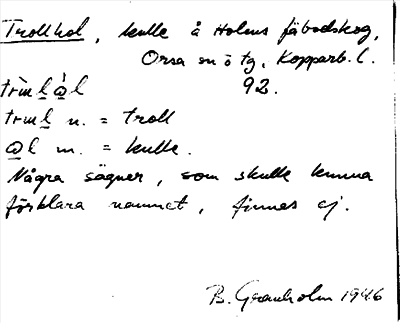 Trollhol, kulle å Holens fäbodskog,
Orsa sn o tg, Kopparb. l.
92.
n. = troll
m. = kulle.
Några sägner, som skulle kunna
förklara namnet, finnes ej.
B. Granholm 1946